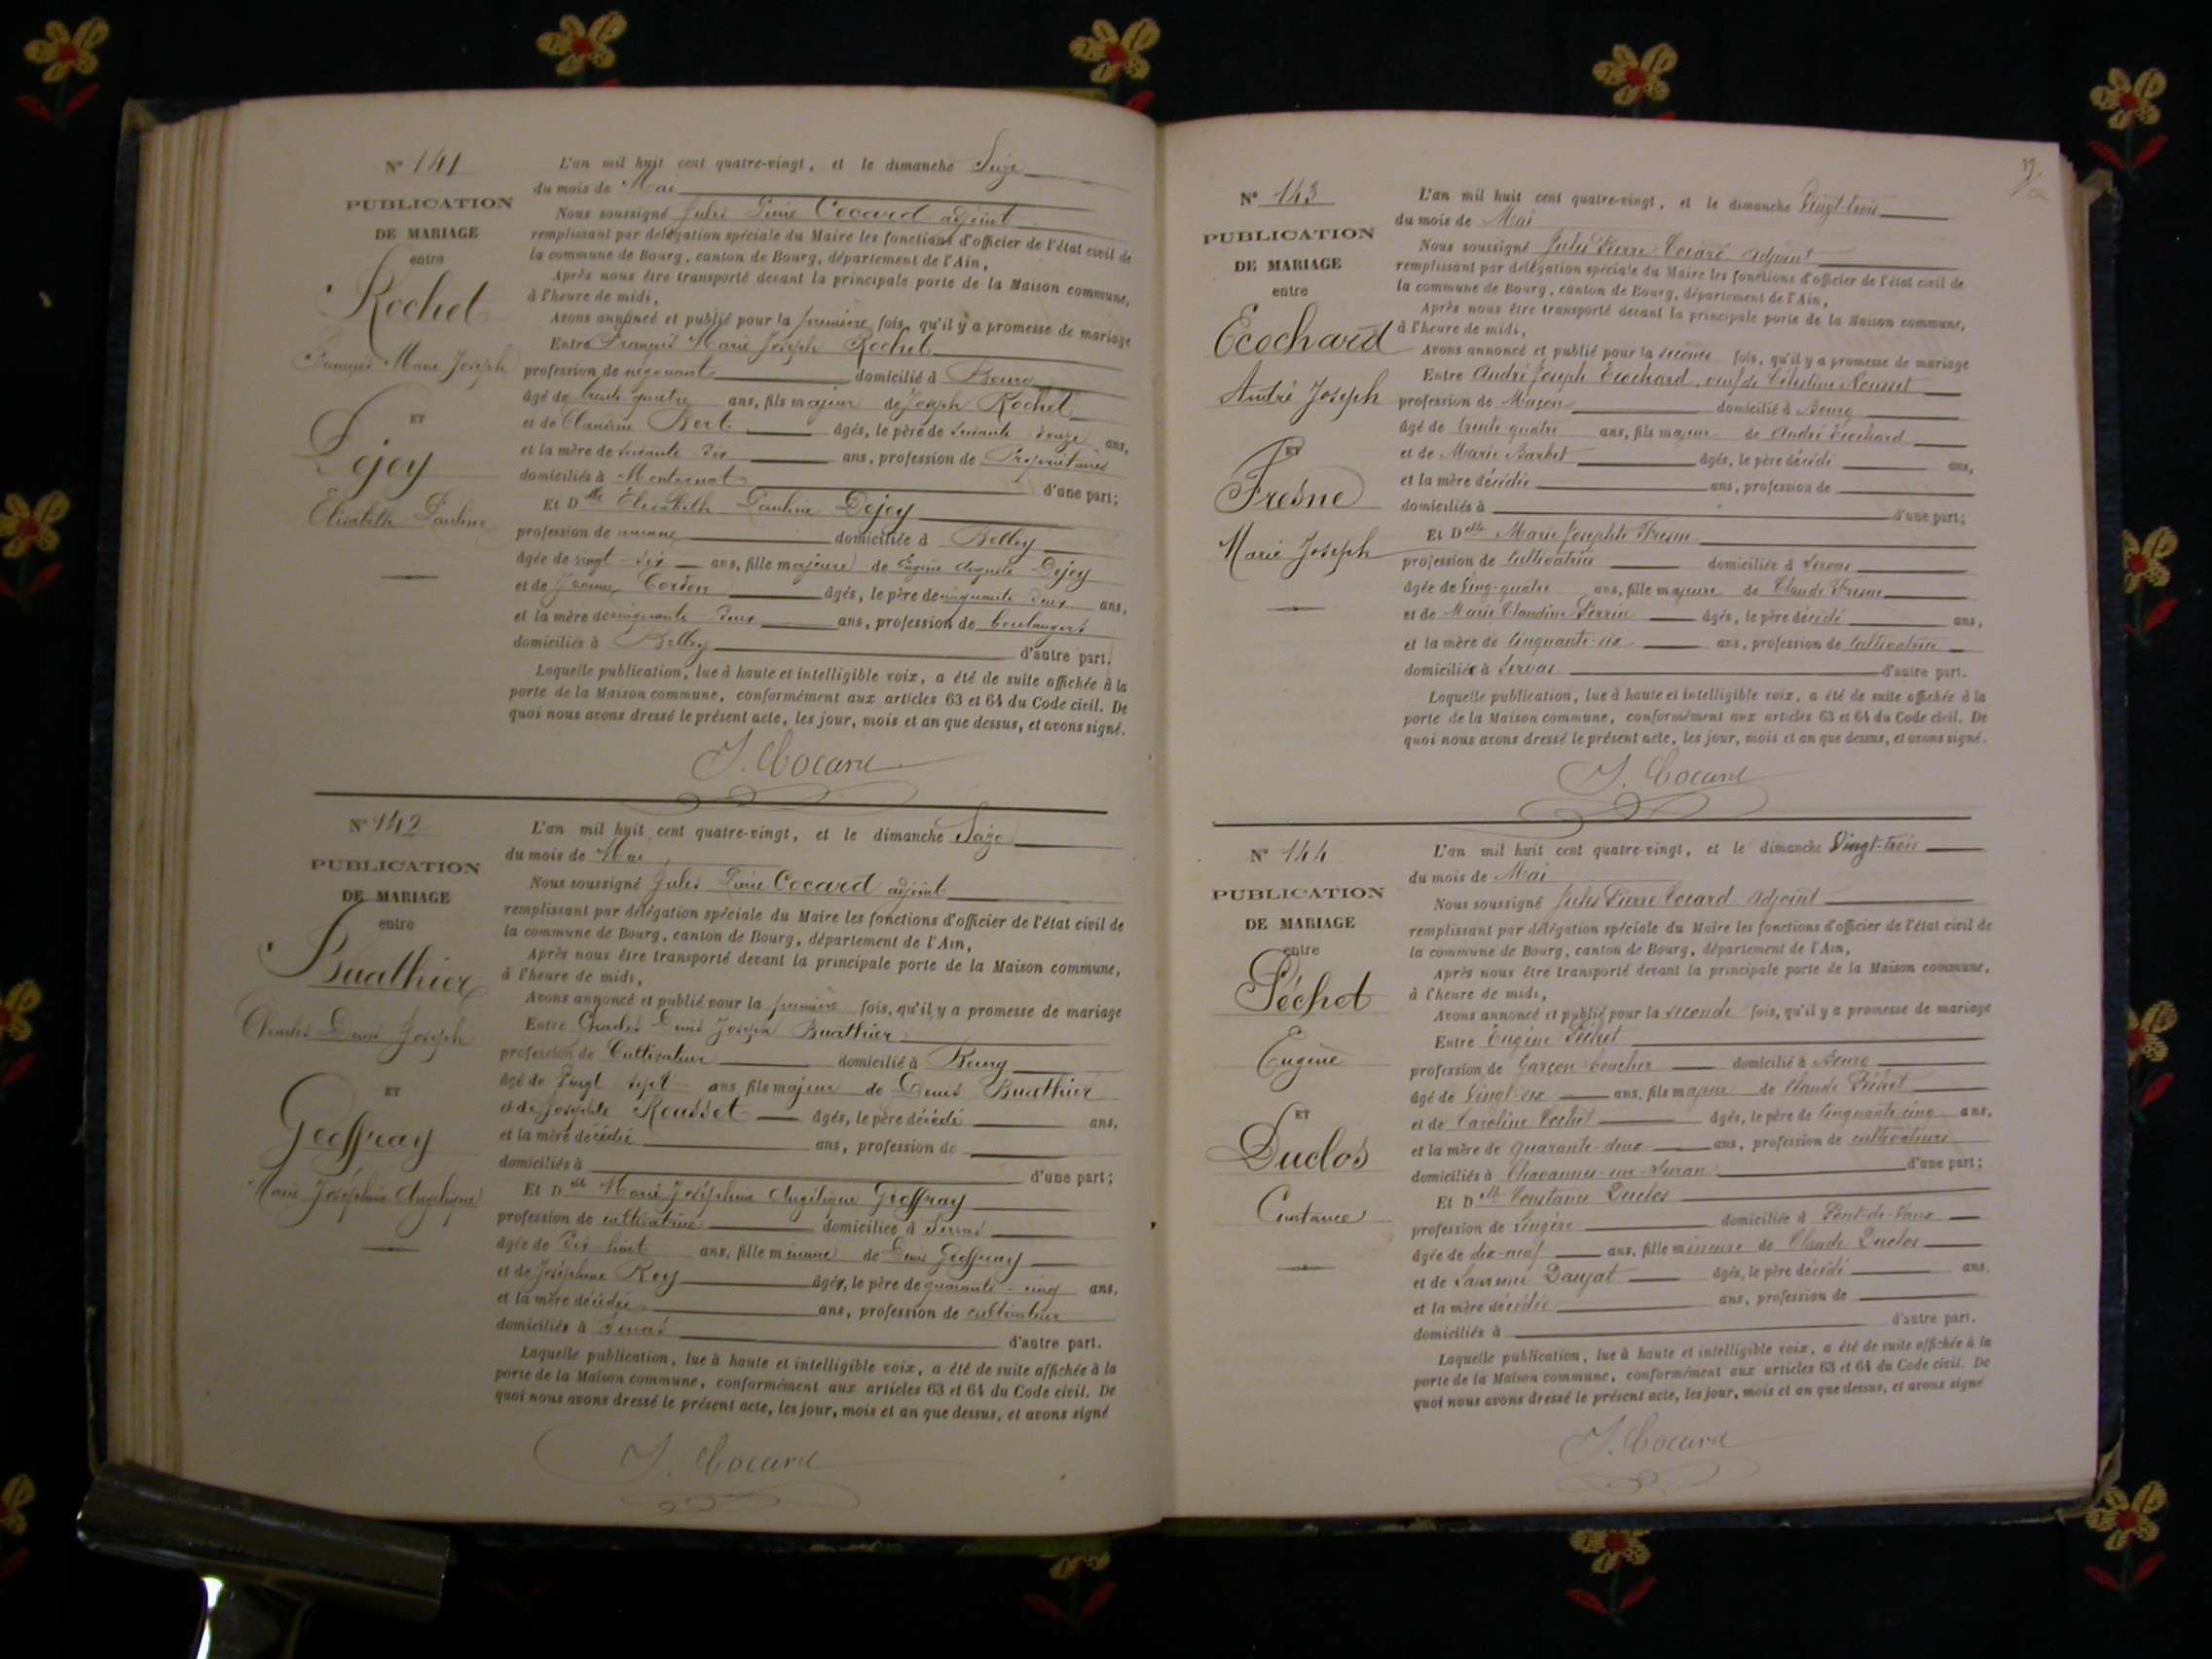 N° 141
PUBLICATION
DE MARIAGE
entre
Rochet
François Marie Joseph
ET
Dejoy
Elisabeth Pauline
L'an mil huit cent quatre-vingt, et le dimanche Seize
du mois de Mai
Nous soussigné Jules Pierre Cocard adjoint
remplissant par délégation spéciale du Maire les fonctions d'officier de l'état civil de
la commune de Bourg, canton de Bourg, département de l'Ain,
Après nous être transporté devant la principale porte de la Maison commune,
à l'heure de midi,
Avons annoncé et publié pour la première fois, qu'il y a promesse de mariage
Entre François Marie Joseph Rochet
profession de négociant domicilié à Bourg
âgé de trente quatre ans, fils majeur de Joseph Rochet
et de Claudine Bert âgés, le père de soixante douze ans,
et la mère de soixante dix ans, profession de Propriétaires
domiciliés à d'une part;
Et Dlle Elisabeth Pauline Dejoy
profession de aucune domiciliée à Belley
âgée de vingt six ans, fille majeure de Eugène Auguste Dejoy
et de Jeanne Cordon âgés, le père de cinquante deux ans,
et la mère de cinquante deux ans, profession de boulangers
domiciliés à Belley d'autre part.
Laquelle publication, lue à haute et intelligible voix, a été de suite affichée à la
porte de la Maison commune, conformément aux articles 63 et 64 du Code civil. De
quoi nous avons dressé le présent acte, les jour, mois et an que dessus, et avons signé.
J. Cocard
N° 142
PUBLICATION
DE MARIAGE
entre
Buathier
Charles Denis Joseph
ET
Geoffray
Marie Joséphine Angélique
L'an mil huit cent quatre-vingt, et le dimanche Seize
du mois de Mai
Nous soussigné Jules Pierre Cocard adjoint
remplissant par délégation spéciale du Maire les fonctions d'officier de l'état civil de
la commune de Bourg, canton de Bourg, département de l'Ain,
Après nous être transporté devant la principale porte de la Maison commune,
à l'heure de midi,
Avons annoncé et publié pour la première fois, qu'il y a promesse de mariage
Entre Charles Denis Joseph Buathier
profession de Cultivateur domicilié à Bourg
âgé de Vingt sept ans fils majeur de Denis Buathier
et de Josephte Rousset âgés, le père décédé ans,
et la mère décédée ans, profession de
domiciliés à d'une part;
Et Dlle Marie Joséphine Angélique Geoffray
profession de cultivatrice domiciliée à Servas
âgée de Dix huit ans, fille mineure de Denis Geoffray
et de Joséphine Rey âgés, le père de quarante cinq ans,
et la mère décédée ans, profession de cultivateur
domiciliés à Servas d'autre part.
Laquelle publication, lue à haute et intelligible voix, a été de suite affichée à la
porte de la Maison commune, conformément aux articles 63 et 64 du Code civil. De
quoi nous avons dressé le présent acte, les jour, mois et an que dessus, et avons signé
J. Cocard
N° 143
PUBLICATION
DE MARIAGE
entre
Ecochard
André Joseph
ET
Fresne
Marie Joseph
L'an mil huit cent quatre-vingt, et le dimanche Vingt-trois
du mois de Mai
Nous soussigné Jules Pierre Cocard adjoint
remplissant par délégation spéciale du Maire les fonctions d'officier de l'état civil de
la commune de Bourg, canton de Bourg, département de l'Ain,
Après nous être transporté devant la principale porte de la Maison commune,
à l'heure de midi,
Avons annoncé et publié pour la seconde fois, qu'il y a promesse de mariage
Entre André Joseph Ecochard, veuf de Célestine Rousset
profession de Maçon domicilié à Bourg
âgé de trente-quatre ans, fils majeur de André Ecochard
et de Marie Barbet âgés, le père décédé ans,
et la mère décédée ans, profession de
domiciliés à d'une part;
Et Dlle Marie Josephte Fresne
profession de Cultivatrice domiciliée à Servas
âgée de Vingt-quatre ans, fille majeure de Claude Fresne
et de Marie Claudine Perrin âgés, le père décédé ans,
et la mère de Cinquante-six ans, profession de Cultivatrice
domiciliée à Servas d'autre part.
Laquelle publication, lue à haute et intelligible voix, a été de suite affichée à la
porte de la Maison commune, conformément aux articles 63 et 64 du Code civil. De
quoi nous avons dressé le présent acte, les jour, mois et an que dessus, et avons signé.
J. Cocard
N° 144
PUBLICATION
DE MARIAGE
entre
Péchet
Eugène
ET
Duclos
Constance
L'an mil huit cent quatre-vingt, et le dimanche Vingt-trois
du mois de Mai
Nous soussigné Jules Pierre Cocard adjoint
remplissant par délégation spéciale du Maire les fonctions d'officier de l'état civil de
la commune de Bourg, canton de Bourg, département de l'Ain,
Après nous être transporté devant la principale porte de la Maison commune,
à l'heure de midi,
Avons annoncé et publié pour la seconde fois, qu'il y a promesse de mariage
Entre Eugène Péchet
profession de Garçon boucher domicilié à Bourg
âgé de Vingt-six ans, fils majeur de Claude Péchet
et de Caroline âgés, le père de Cinquante cinq ans,
et la mère de quarante-deux ans, profession de cultivateurs
domiciliés à Chavannes-sur-Suran d'une part;
Et Dlle Constance Duclos
profession de Lingère domiciliée à Pont-de-Vaux
âgée de dix-neuf ans, fille mineure de Claude Duclos
et de Daujat âgés, le père décédé ans.
et la mère décédée ans, profession de
domiciliés à d'autre part.
Laquelle publication, lue à haute et intelligible voix, a été de suite affichée à la
porte de la Maison commune, conformément aux articles 63 et 64 du Code civil. De
quoi nous avons dressé le présent acte, les jour, mois et an que dessus, et avons signé
J. Cocard